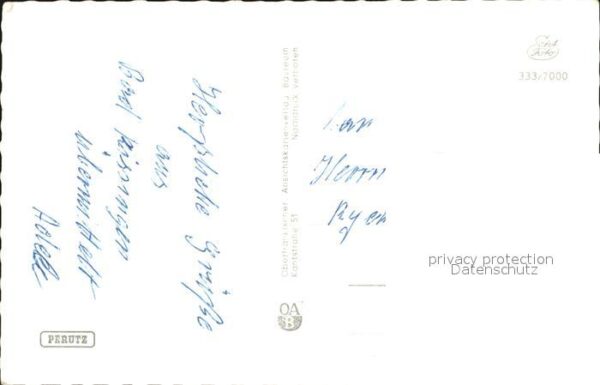 Herzliche Grüße
aus
Bad Kissingen
übermittelt
Adele
Oberfränkischer Ansichtskartenverlag Bayreuth
Kanzlstraße 51 Nachdruck verboten
Herrn
333/7000
privacy protection
Datenschutz
OA
B
PERUTZ